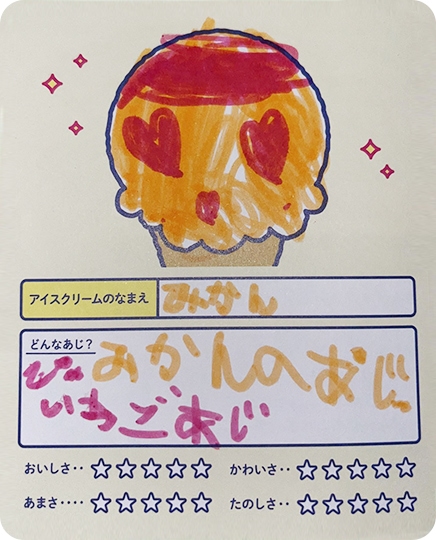 アイスクリームのなまえ
みかん
どんなあじ?
みかんのあじ
いちごあじ
おいしさ‥ ☆☆☆☆☆ かわいさ‥ ☆☆☆☆☆
あまさ‥‥ ☆☆☆☆☆ たのしさ‥ ☆☆☆☆☆